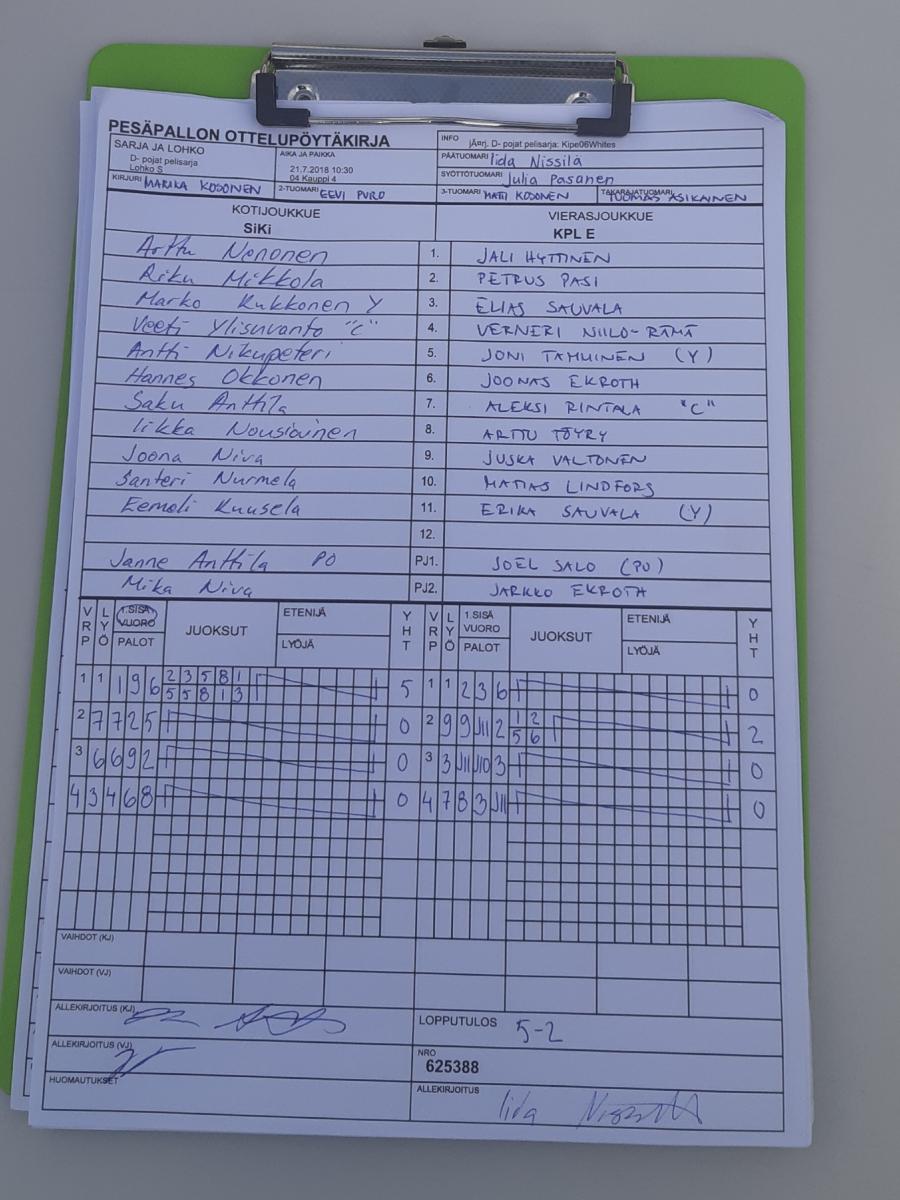 PESÄPALLON OTTELUPÖYTÄKIRJA
SARJA JA LOHKO
D- pojat pelisarja
Lohko S
AIKA JA PAIKKA
21.7.2018 10:30
04 Kauppi 4
INFO jÄ¤rj. D- pojat pelisarja: Kipe06Whites
PÄÄTUOMARI Iida Nissilä
SYÖTTÖTUOMARI Julia Pasanen
KIRJURI MARIKA KOSONEN
2-TUOMARI EEVI PURO
3-TUOMARI MATTI KOSONEN
TAKARAJATUOMARI TUOMAS ASIKAINEN
KOTIJOUKKUE
SiKi
VIERASJOUKKUE
KPL E
Arttu Nenonen 1. JALI HYTTINEN
Riku Mikkola 2. PETRUS PASI
Marko Kukkonen Y 3. ELIAS SAUVALA
Veeti Ylisuvanto "C" 4. VERNERI NIILO-RÄMÄ
Antti Nikupeteri 5. JONI TAMMINEN (Y)
Hannes Okkonen 6. JOONAS EKROTH
Saku Anttila 7. ALEKSI RINTALA "C"
Iikka Nousiainen 8. ARTTU TÖYRY
Joona Niva 9. JUSKA VALTONEN
Santeri Nurmela 10. MATIAS LINDFORS
Eemeli Kuusela 11. ERIKA SAUVALA (Y)
12.
Janne Anttila PO PJ1. JOEL SALO (PO)
Mika Niva PJ2. JARKKO EKROTH
VRP LYÖ 1.SISÄ VUORO PALOT JUOKSUT ETENIJÄ LYÖJÄ YHT VRP LYÖ 1.SISÄ VUORO PALOT JUOKSUT ETENIJÄ LYÖJÄ YHT
1 1 1 9 6 2 3 5 8 1 5 1 1 2 3 6 0
5 5 8 1 3
2 7 7 2 5 0 2 9 9 J11 2 1 2 2
5 6
3 6 6 9 2 0 3 3 J11 J10 3 0
4 3 4 6 8 0 4 7 8 3 J11 0
VAIHDOT (KJ)
VAIHDOT (VJ)
ALLEKIRJOITUS (KJ)
LOPPUTULOS 5-2
ALLEKIRJOITUS (VJ)
NRO
625388
HUOMAUTUKSET
ALLEKIRJOITUS
Iida Nissilä